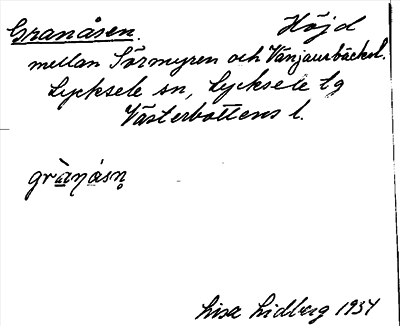 Granåsen. Höjd
mellan Sörmyren och Vänjaurbäcksl.
Lycksele sn, Lycksele lg
Västerbottens l.
Lisa Lidberg 1934